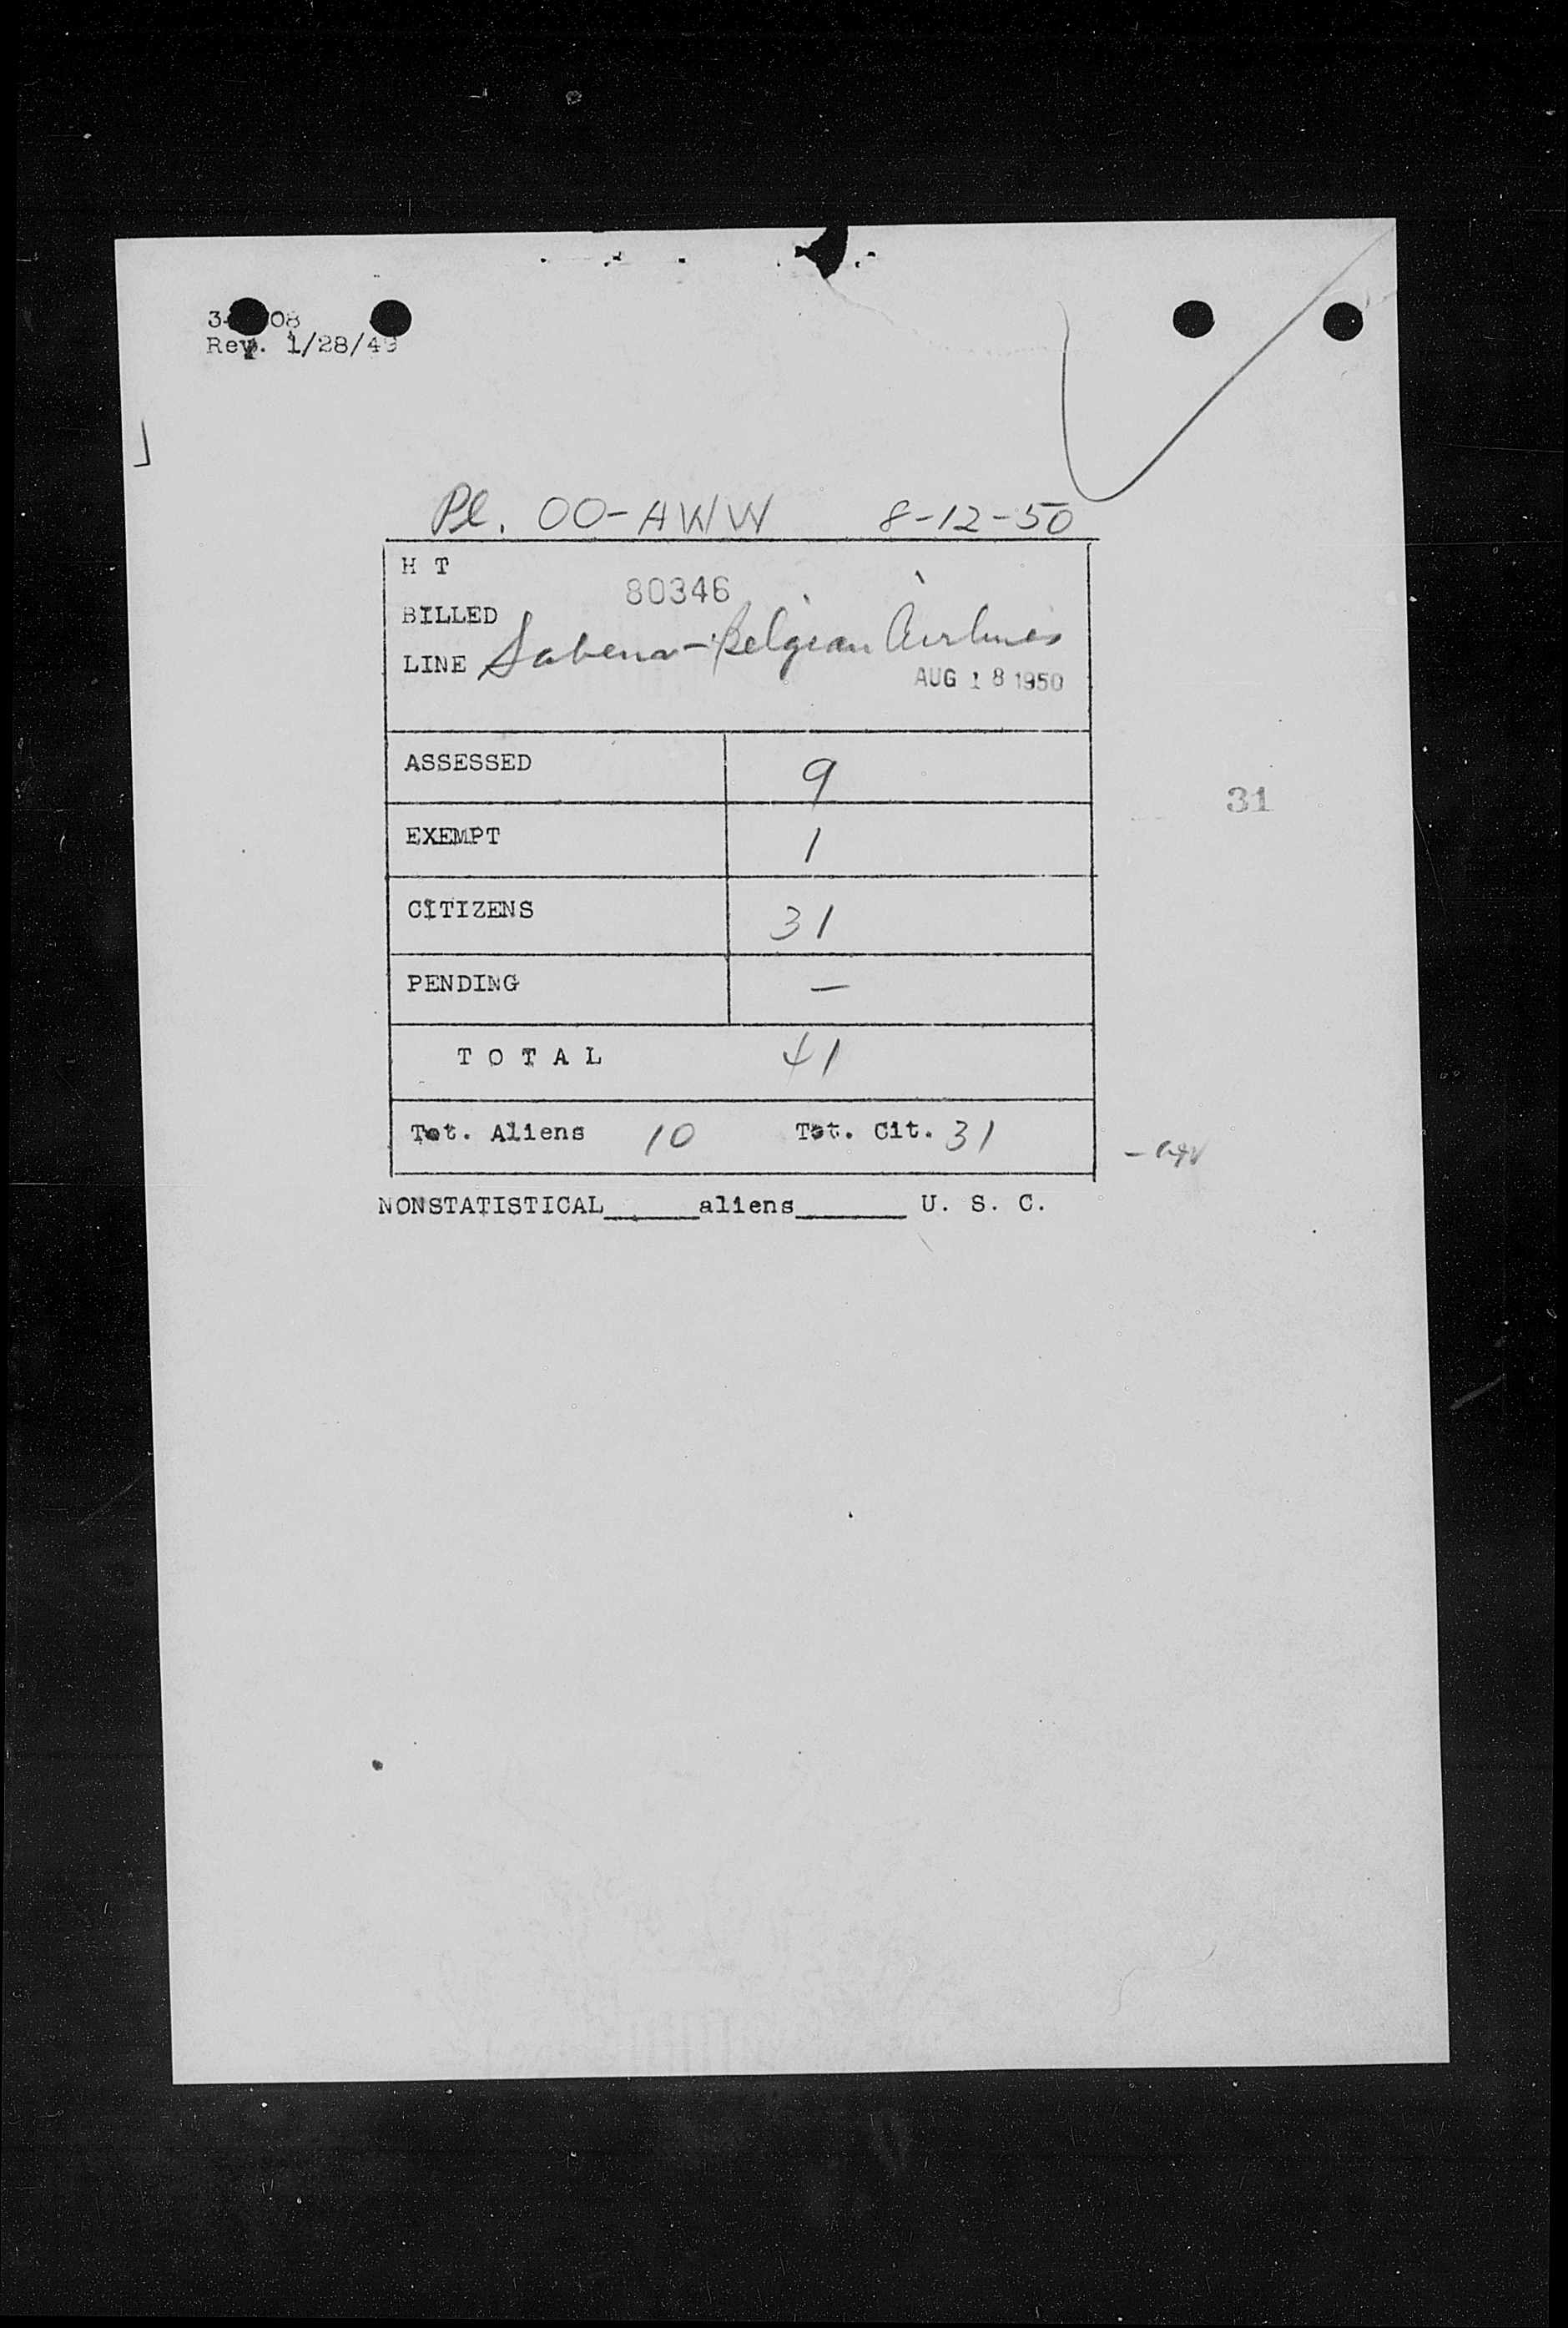 Rev. 1/28/49
Pl. OO-AWW 8-12-50
H T
80346
BILLED
LINE Sabena-Belgian Airlines
AUG 18 1950
ASSESSED 9
31
EXEMPT 1
CITIZENS 31
PENDING —
TOTAL 41
Tot. Aliens 10 Tot. Cit. 31
NONSTATISTICAL______aliens_______ U. S. C.